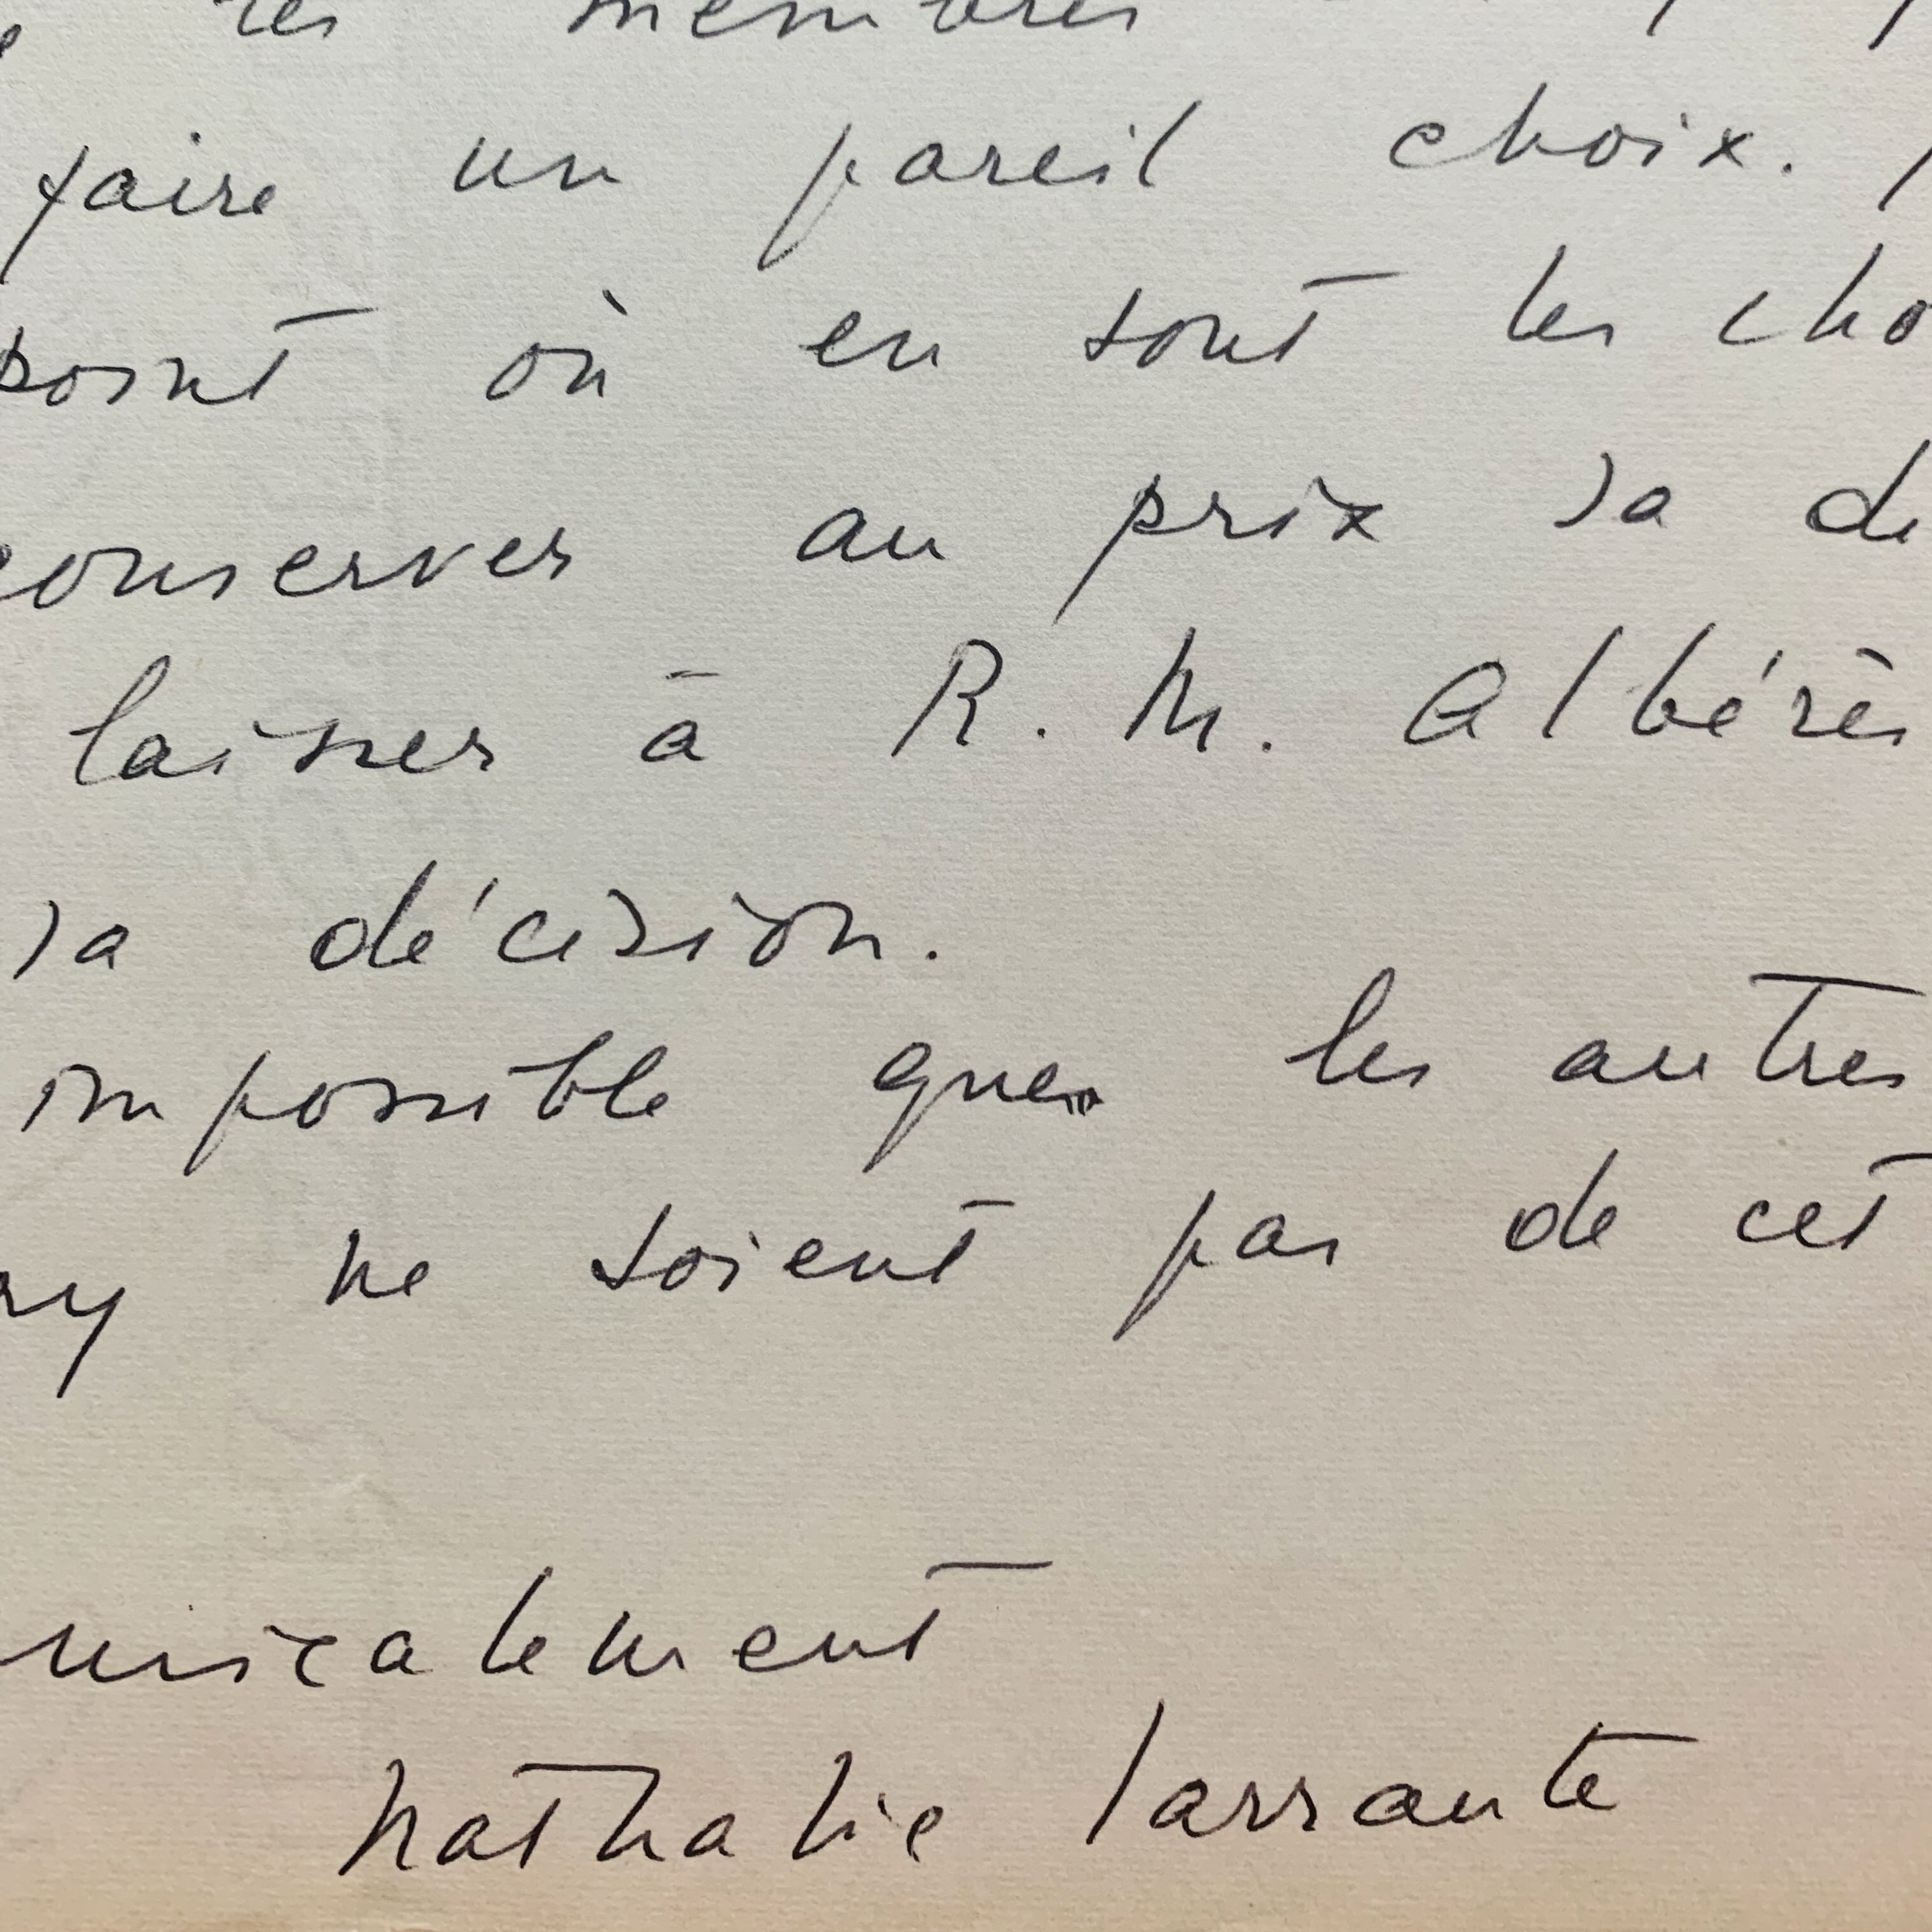 les membres
faire un pareil choix.
point où en sont les cho
conserver au prix sa di
laisser à R. M. Albérès
sa décision.
impossible que les autres
ry ne soient pas de cet
micalement
Nathalie Sarraute